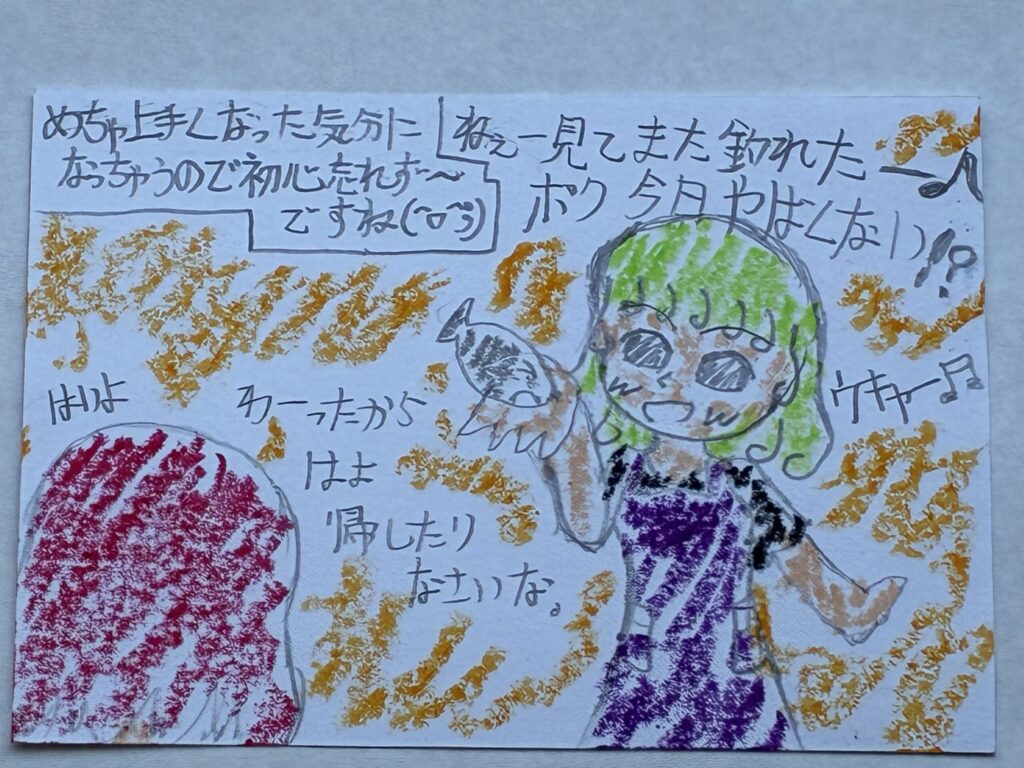 めっちゃ上手くなった気分に
なっちゃうので初心忘れず〜
ですね
ねぇ一見てまた釣れたー♪
ボク今日やばくない!?
ウキャー♬
はりよ
わーったから
はよ
帰したり
なさいな。